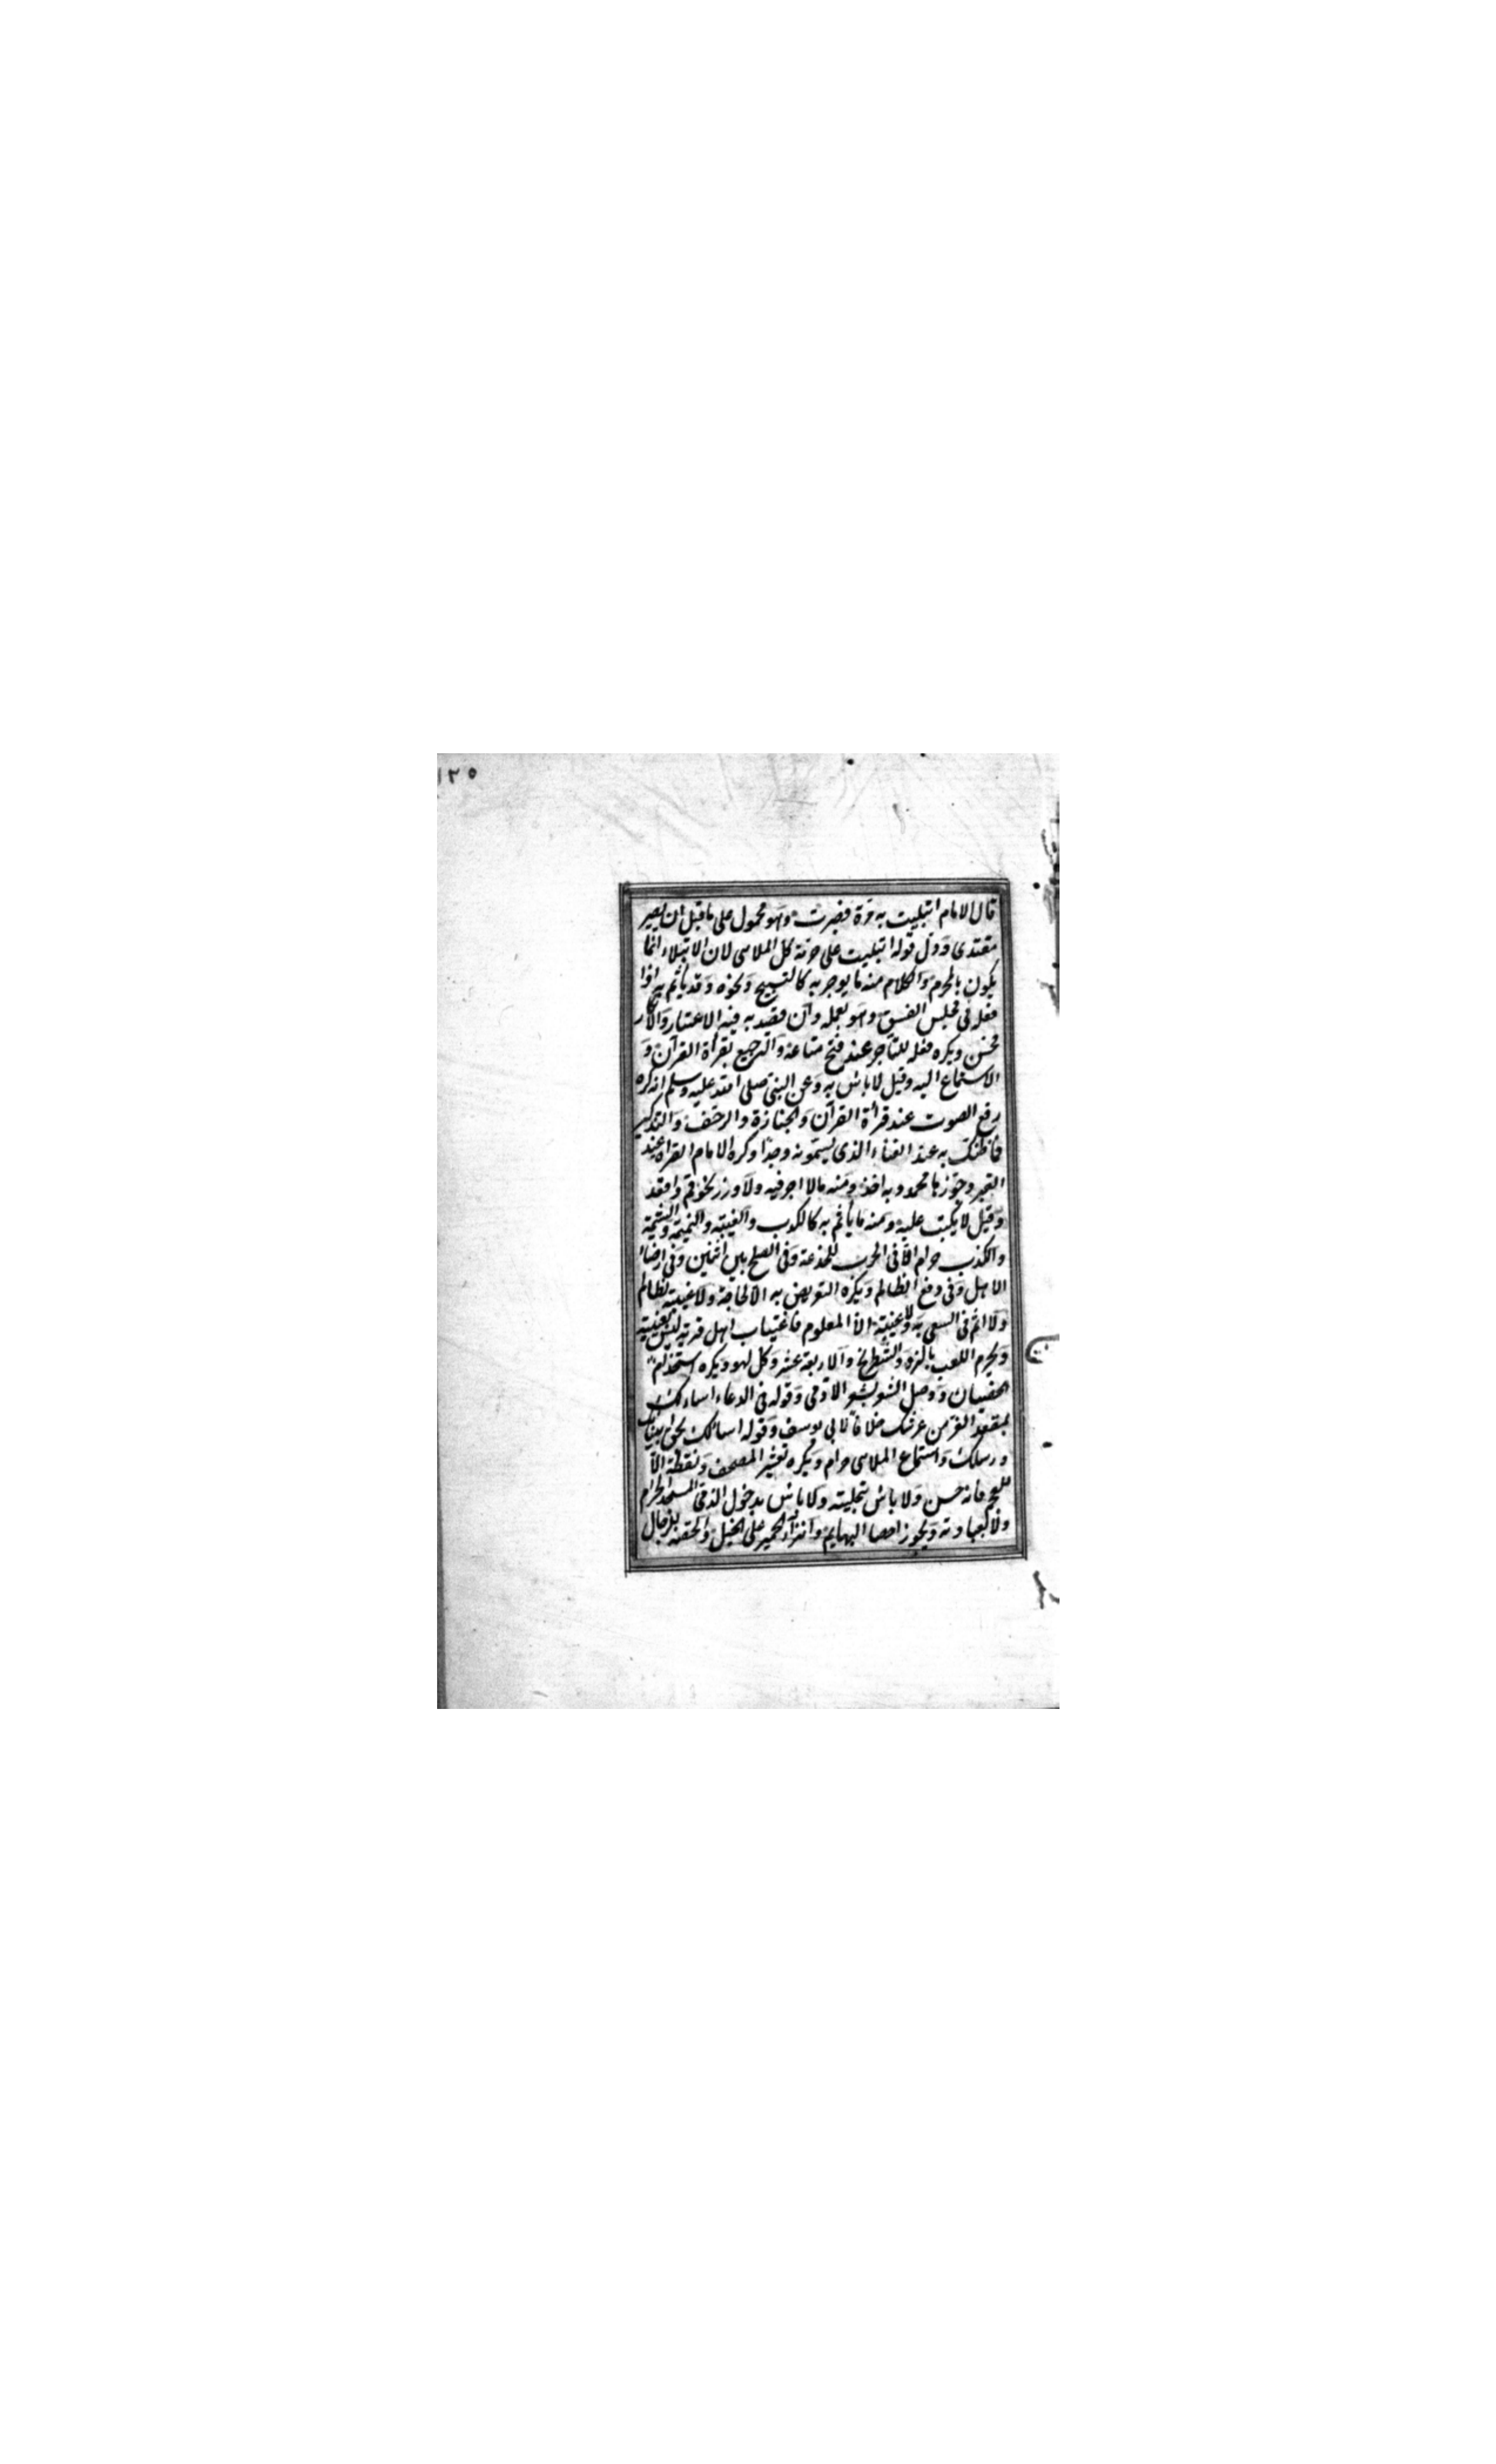 ١٢٥
قال الامام ابتليت به مرة فصبرت وهو محمول على ما قبل ان يصير
مقتدى ودل قوله ابتليت على حرمة كل الملاهى لان الابتلاء انما
يكون بالمحرم والكلام منه ما يوجر به كالتسبيح ونحوه وقد ياثم به اذا
فعله فى مجلس الفسق وهو يعمله وان قصد به فيه الاعتبار والانكار
فحسن ويكره فعله للتاجر عند فتح متاعه والترجيع بقراة القرآن و
الاستماع اليه وقيل لا باس به وعن النبى صلى الله عليه وسلم انه كره
رفع الصوت عند قرأة القرآن والجنازة والزحف والتذكير
فما ظنك به عند الغناء الذى يسمونه وجدا وكره الامام القراة عند
القبر وجوزها محمد وبه اخذ ومنه مالا اجر فيه ولا وزر نحو قم واقعد
وقيل لا يكتب عليه ومنه ما ياثم به كالكذب والغيبة والنميمة والشتيمة
والكذب حرام الا فى الحرب للخدعة وفى الصلح بين اثنين وفى ارضاء
الاهل وفى دفع الظالم ويكره التعريض به الا لحاجة ولا غيبة لظالم
ولا اثم فى السعى به ولا غيبة الا لمعلوم فاغتياب اهل قرية ليس بغيبة
ويحرم اللعب بالنرد والشطرنج والاربعة عشر وكل لهو ويكره استخدام
الخصيان ووصل الشعر بشعر الادمى وقوله فى الدعاء اسالك
بمقعد العز من عرشك خلافا لابى يوسف وقوله اسالك بحق انبيائك
ورسلك واستماع الملاهى حرام ويكره تعشير المصحف ونقطه الا
للعجم فانه حسن ولا باس بتحليته ولا باس بدخول الذمى المسجد الحرام
ولا بعيادته ويجوز اخصا البهايم وانزاء الحمير على الخيل والحقنة للرجال